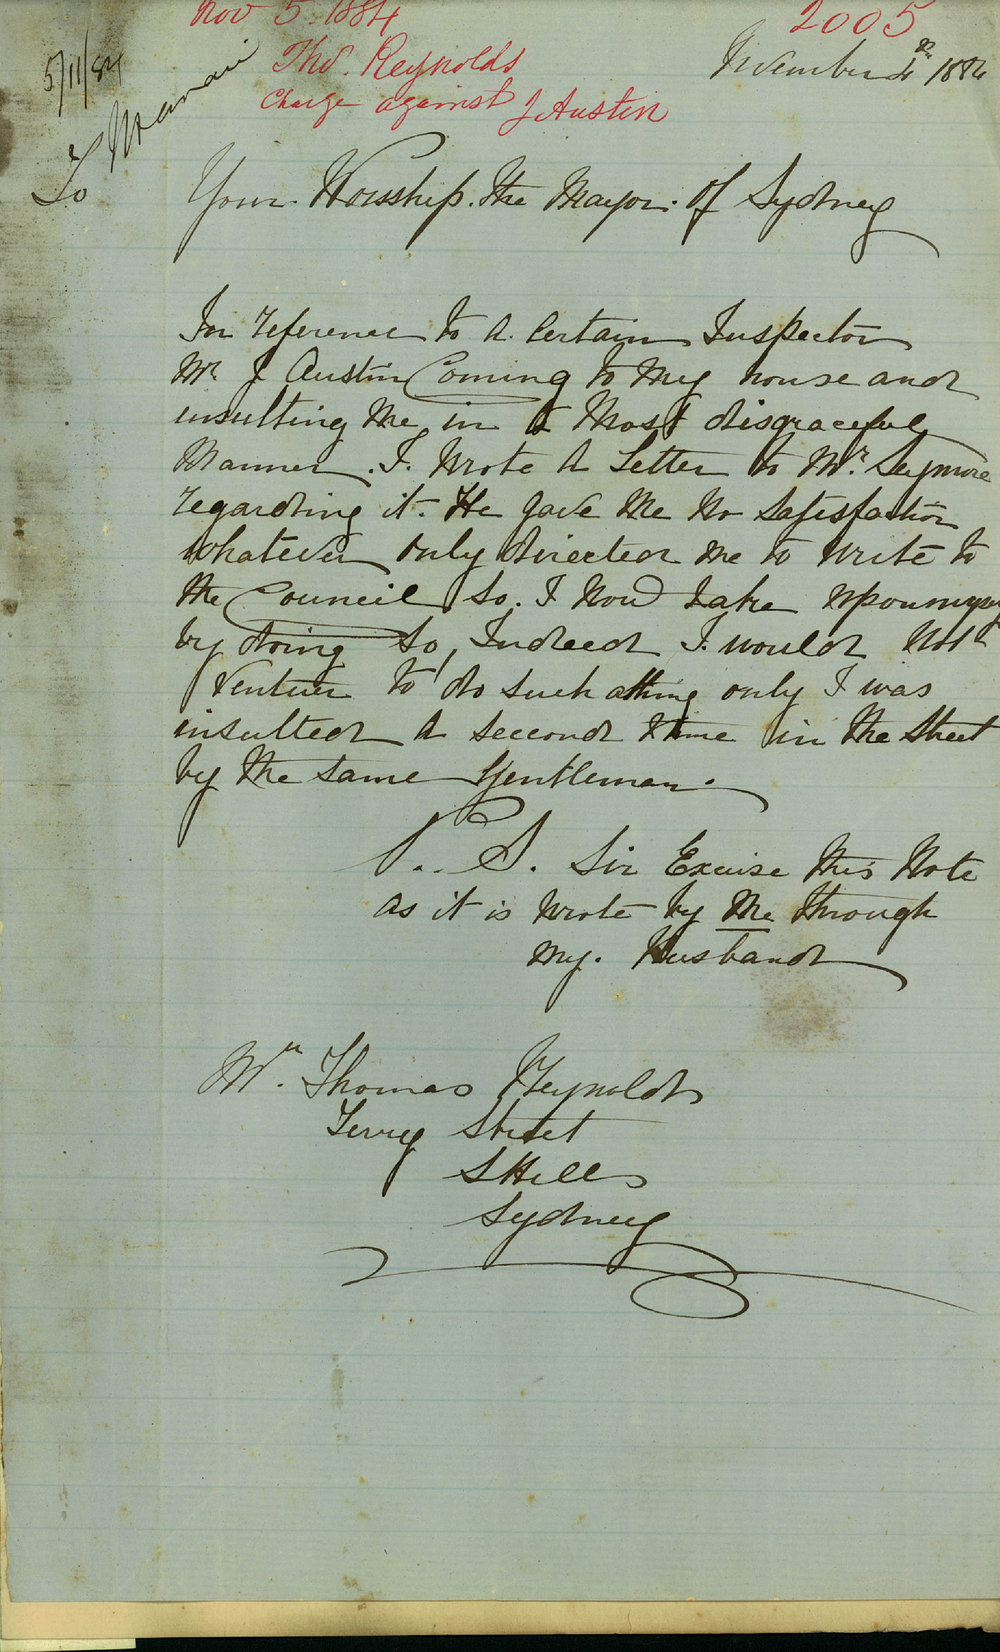 Nov 5. 1884
2005
Tho.s Reynolds
Charge against J Austin
5/11/84
To
November 4th 1884
Your Worship. The Mayor. Of Sydney
In reference to A. Certain Inspector
Mr. J Austin Coming to My house and
insulting Me in A Most disgraceful
Manner. I. Wrote A Letter to Mr. Seymore
regarding it. He gave Me No Satisfaction
whatever only directed me to write to
the Council So. I Now take upon myself
by doing So, Indeed I. would Not
Venture to do such a thing only I was
insulted A second time in the Street
by the same Gentleman.
P.. S. Sir Excuse this Note
as it is Wrote by Me through
My. Husband
Mr. Thomas Reynolds
Terry Street
S Hills
Sydney